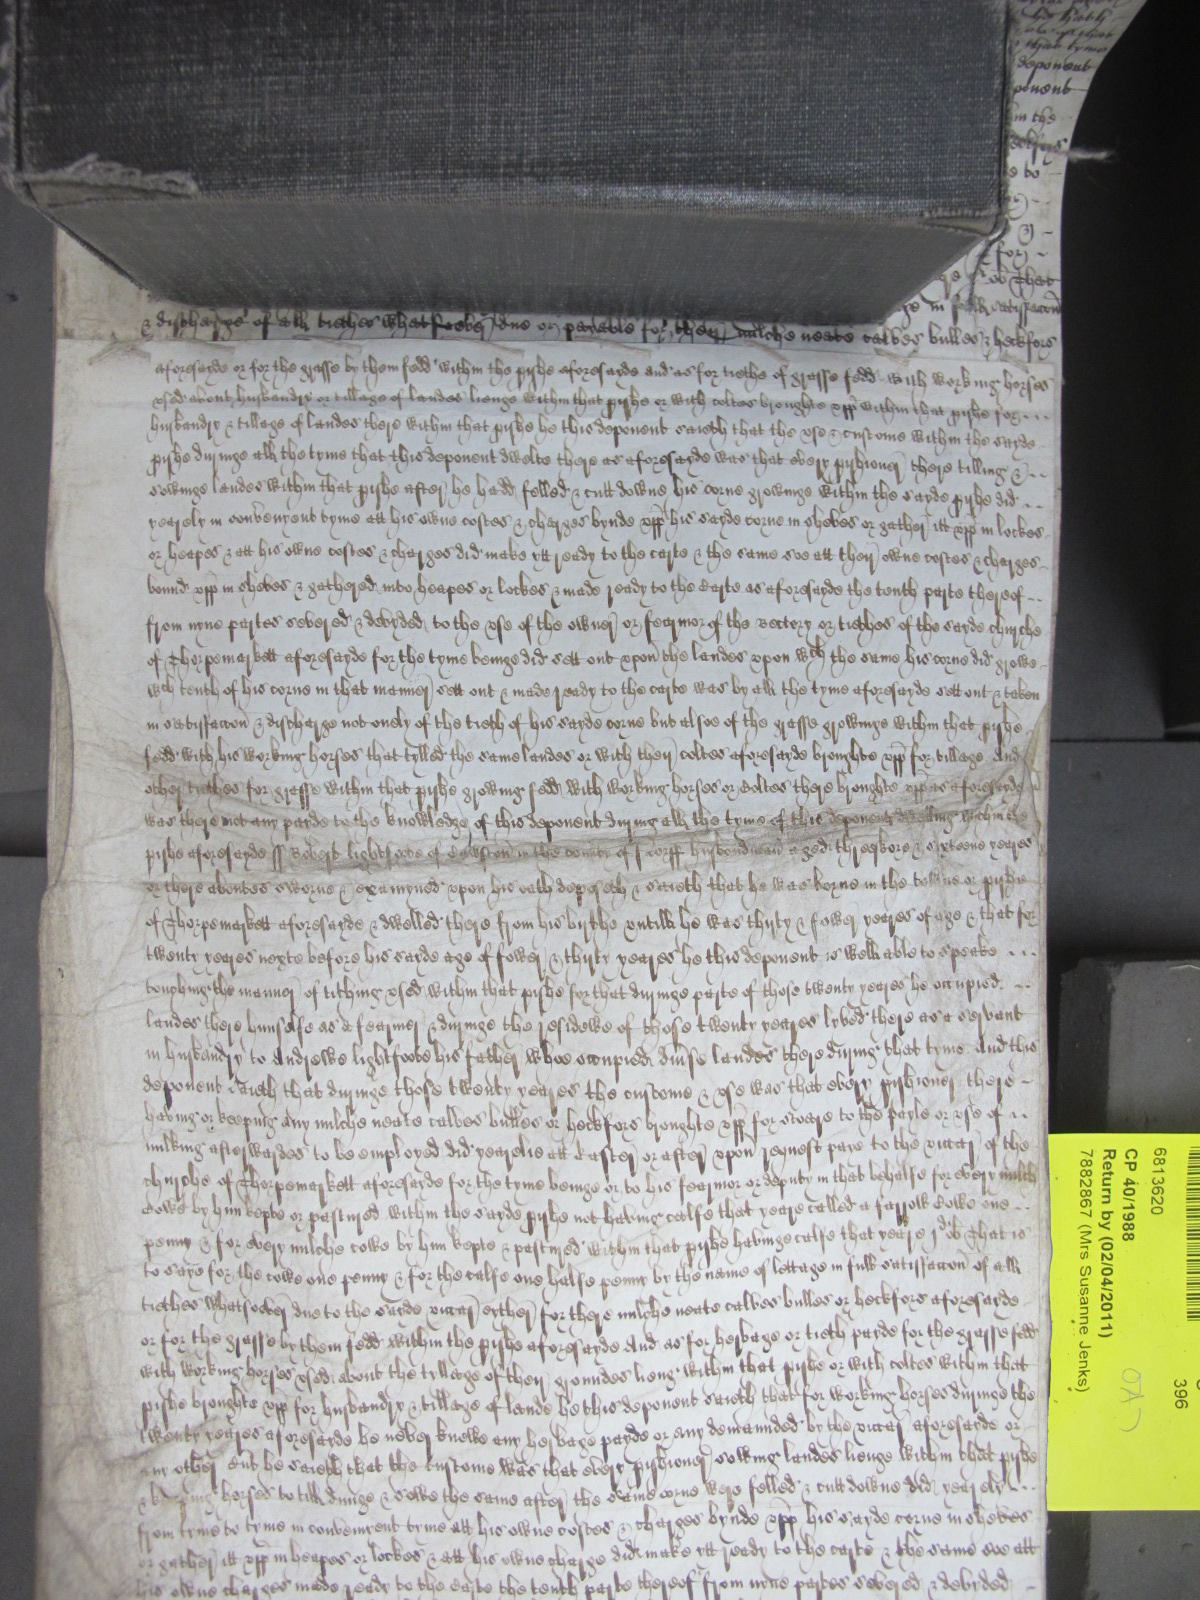 he hath
that tyme
deponent
ponent
in the
heckfors
e to
for
That
in full satisfaccon
& discharge of all tiethes whatsoever due or payable for their milche neate calves bulles & heckfors
aforesayde or for the grasse by them fedd within the pishe aforesayde and as for tiethe of grasse fedd with working horses
vsed about husbandry or tillage of landes lienge within that pishe or with coltes broughte vpp within that pishe for
husbandry & tillage of landes there within that pishe he this deponent saieth that the vse & custome within the sayde
pishe duringe all the tyme that this deponent dwelte there as aforesayde was that every pishioner there tilling &
sowinge landes within that pishe after he hadd felled & cutt downe his corne growinge within the sayde pishe did
yearely in convenyent tyme att his owne costes & charges bynde vpp his sayde corne in sheves or gather itt vpp in lockes
or heapes & att his owne costes & charges did make ytt ready to the carte & the same soe att their owne costes & charges
bound vpp in sheves & gathered into heapes or lockes & made ready to the Carte as aforesayde the tenth parte thereof
from nyne partes severed & devyded to the vse of the owner or fearmor of the Rectery or tiethes of the sayde churche
of Thorpemarkett aforesayde for the tyme beinge did sett out vpon the landes vpon wch the same his corne did growe
wch tenth of his corne in that manner sett out & made ready to the carte was by all the tyme aforesayde sett out & taken
in satisfaccon & discharge not onely of the tieth of his sayde corne but alsoe of the grasse growinge within that pishe
fedd with his working horses that tylled the same landes or with their coltes aforesayde broughte vpp for tillage And
other tiethes for grasse within that pishe growing fedd with working horses or Coltes there broughte vpp as aforesayde
was there not any payde to the knowledge of this deponent during all the tyme of this deponents dwelling within the
pishe aforesayde Robert lightfoote of in the county of Norff husbandman aged threskore & sixteene yeares
or there aboutes sworne & examyned vpon his oath deposeth & saieth that he was borne in the towne or pishe
of Thorpemarkett aforesayde & dwelled there from his birthe vntill he was thirty & fower yeares of age & that for
twenty yeares nexte before his sayde age of fower & thirty yeares he this deponent is well able to speake
touching the manner of tithing vsed within that pishe for that duringe parte of those twenty yeares he occupied
landes there himselfe as a fearmer & duringe the residewe of those twenty yeares lyved there as a servant
in husbandry to Andrewe lightfoote his father whoe occupied divse landes there during that tyme And this
deponent saieth that duringe those twenty yeares the custome & vse was that every pishioner there
having or keeping any milche neate calves bulles or heckfors broughte vpp for stoare to the payle or vse of
milking afterwardes to be employed did yearelie att Easter or after vpon request paye to the viccar of the
churche of Thorpemarkett aforesayde for the tyme beinge or to his fearmor or deputy in that behalfe for every milch
Cowe by him kepte or pastured within the sayde pishe not having calfe that yeare called a farrowe Cowe one
penny & for every milche cowe by him kepte & pastured within that pishe havinge calfe that yeare jd ob That is
to saye for the cowe one penny & for the calfe one halfe penny by the name of lottage in full satisfaccon of all
tiethes whatsoever due to the sayde viccar eyther for there milche neate calves bulles or heckfors aforesayde
or for the grasse by them fedd within the pishe aforesayde And as for herbage or tieth payde for the grasse fedd
with working horses vsed about the tyllage of their groundes lieng within that pishe or with coltes within that
pishe broughte vpp for husbandry & tillage of lande he this deponent saieth that for working horses duringe the
twenty yeares aforesayde he never knewe any herbage payde or any demaunded by the viccar aforesayde or
any other But he saieth that the custome was that every pishioner sowing landes lienge within that pishe
& keeping horses to till dunge & sowe the same after the same corne were felled & cutt downe did yearely
from tyme to tyme in convenyent tyme att his owne costes & charges bynde vpp his sayde corne in sheves
or gather itt vpp in heapes or lockes & att his owne charge did make ytt ready to the carte & the same soe att
his owne charges made ready to the carte the tenth parte thereof from nyne partes severed & devyded
6813620
CP 40/1988
Return by (02/04/2011)
7882867 (Mrs Susanne Jenks)
396